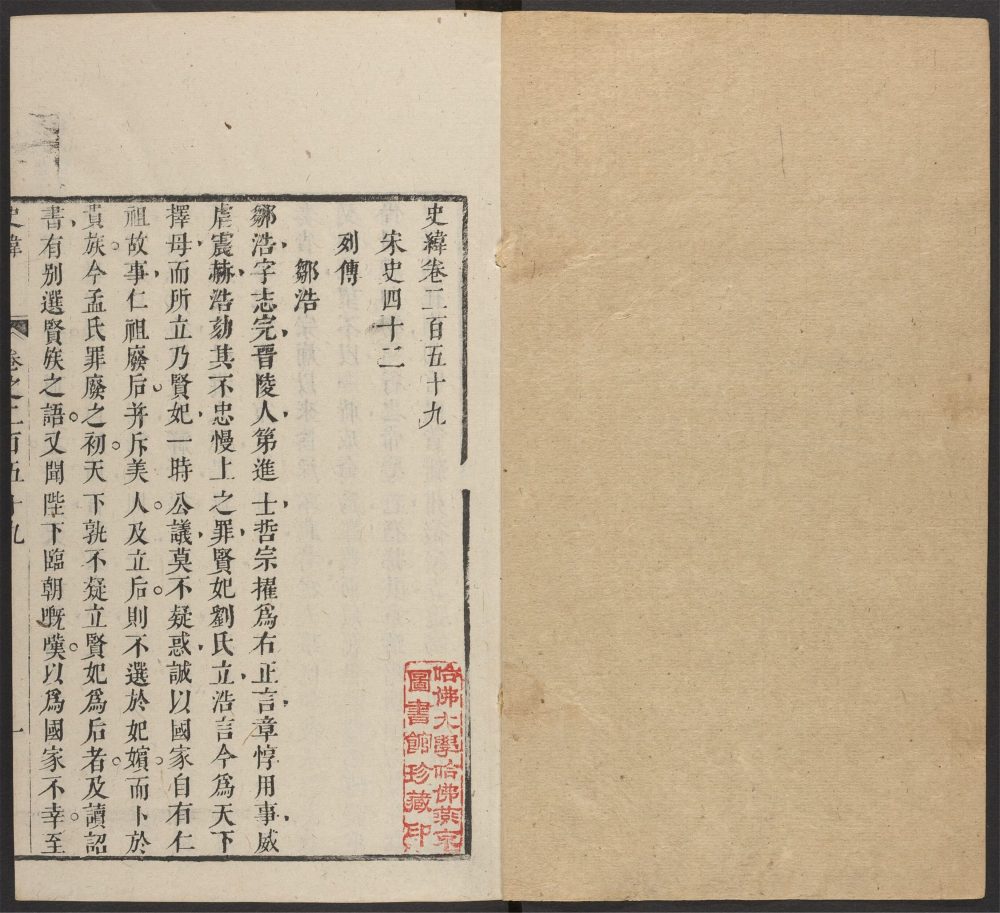 史緯卷二百五十九
宋史四十二
列傳
鄒浩
鄒浩字志完晋陵人第進士哲宗擢爲右正言章惇用事威
虐震赫浩劾其不忠慢上之罪賢妃劉氏立浩言今爲天下
擇母而所立乃賢妃一時公議莫不疑惑誠以國家自有仁
祖故事仁祖廢后并斥美人及立后則不選於妃嬪而卜於
貴族今孟氏罪廢之初天下孰不疑立賢妃爲后者及讀詔
書有别選賢族之語又聞陛下臨朝嘅嘆以爲國家不幸至
史緯
卷之二百五十九
一
哈佛大學哈佛燕京
圖書館珍藏印